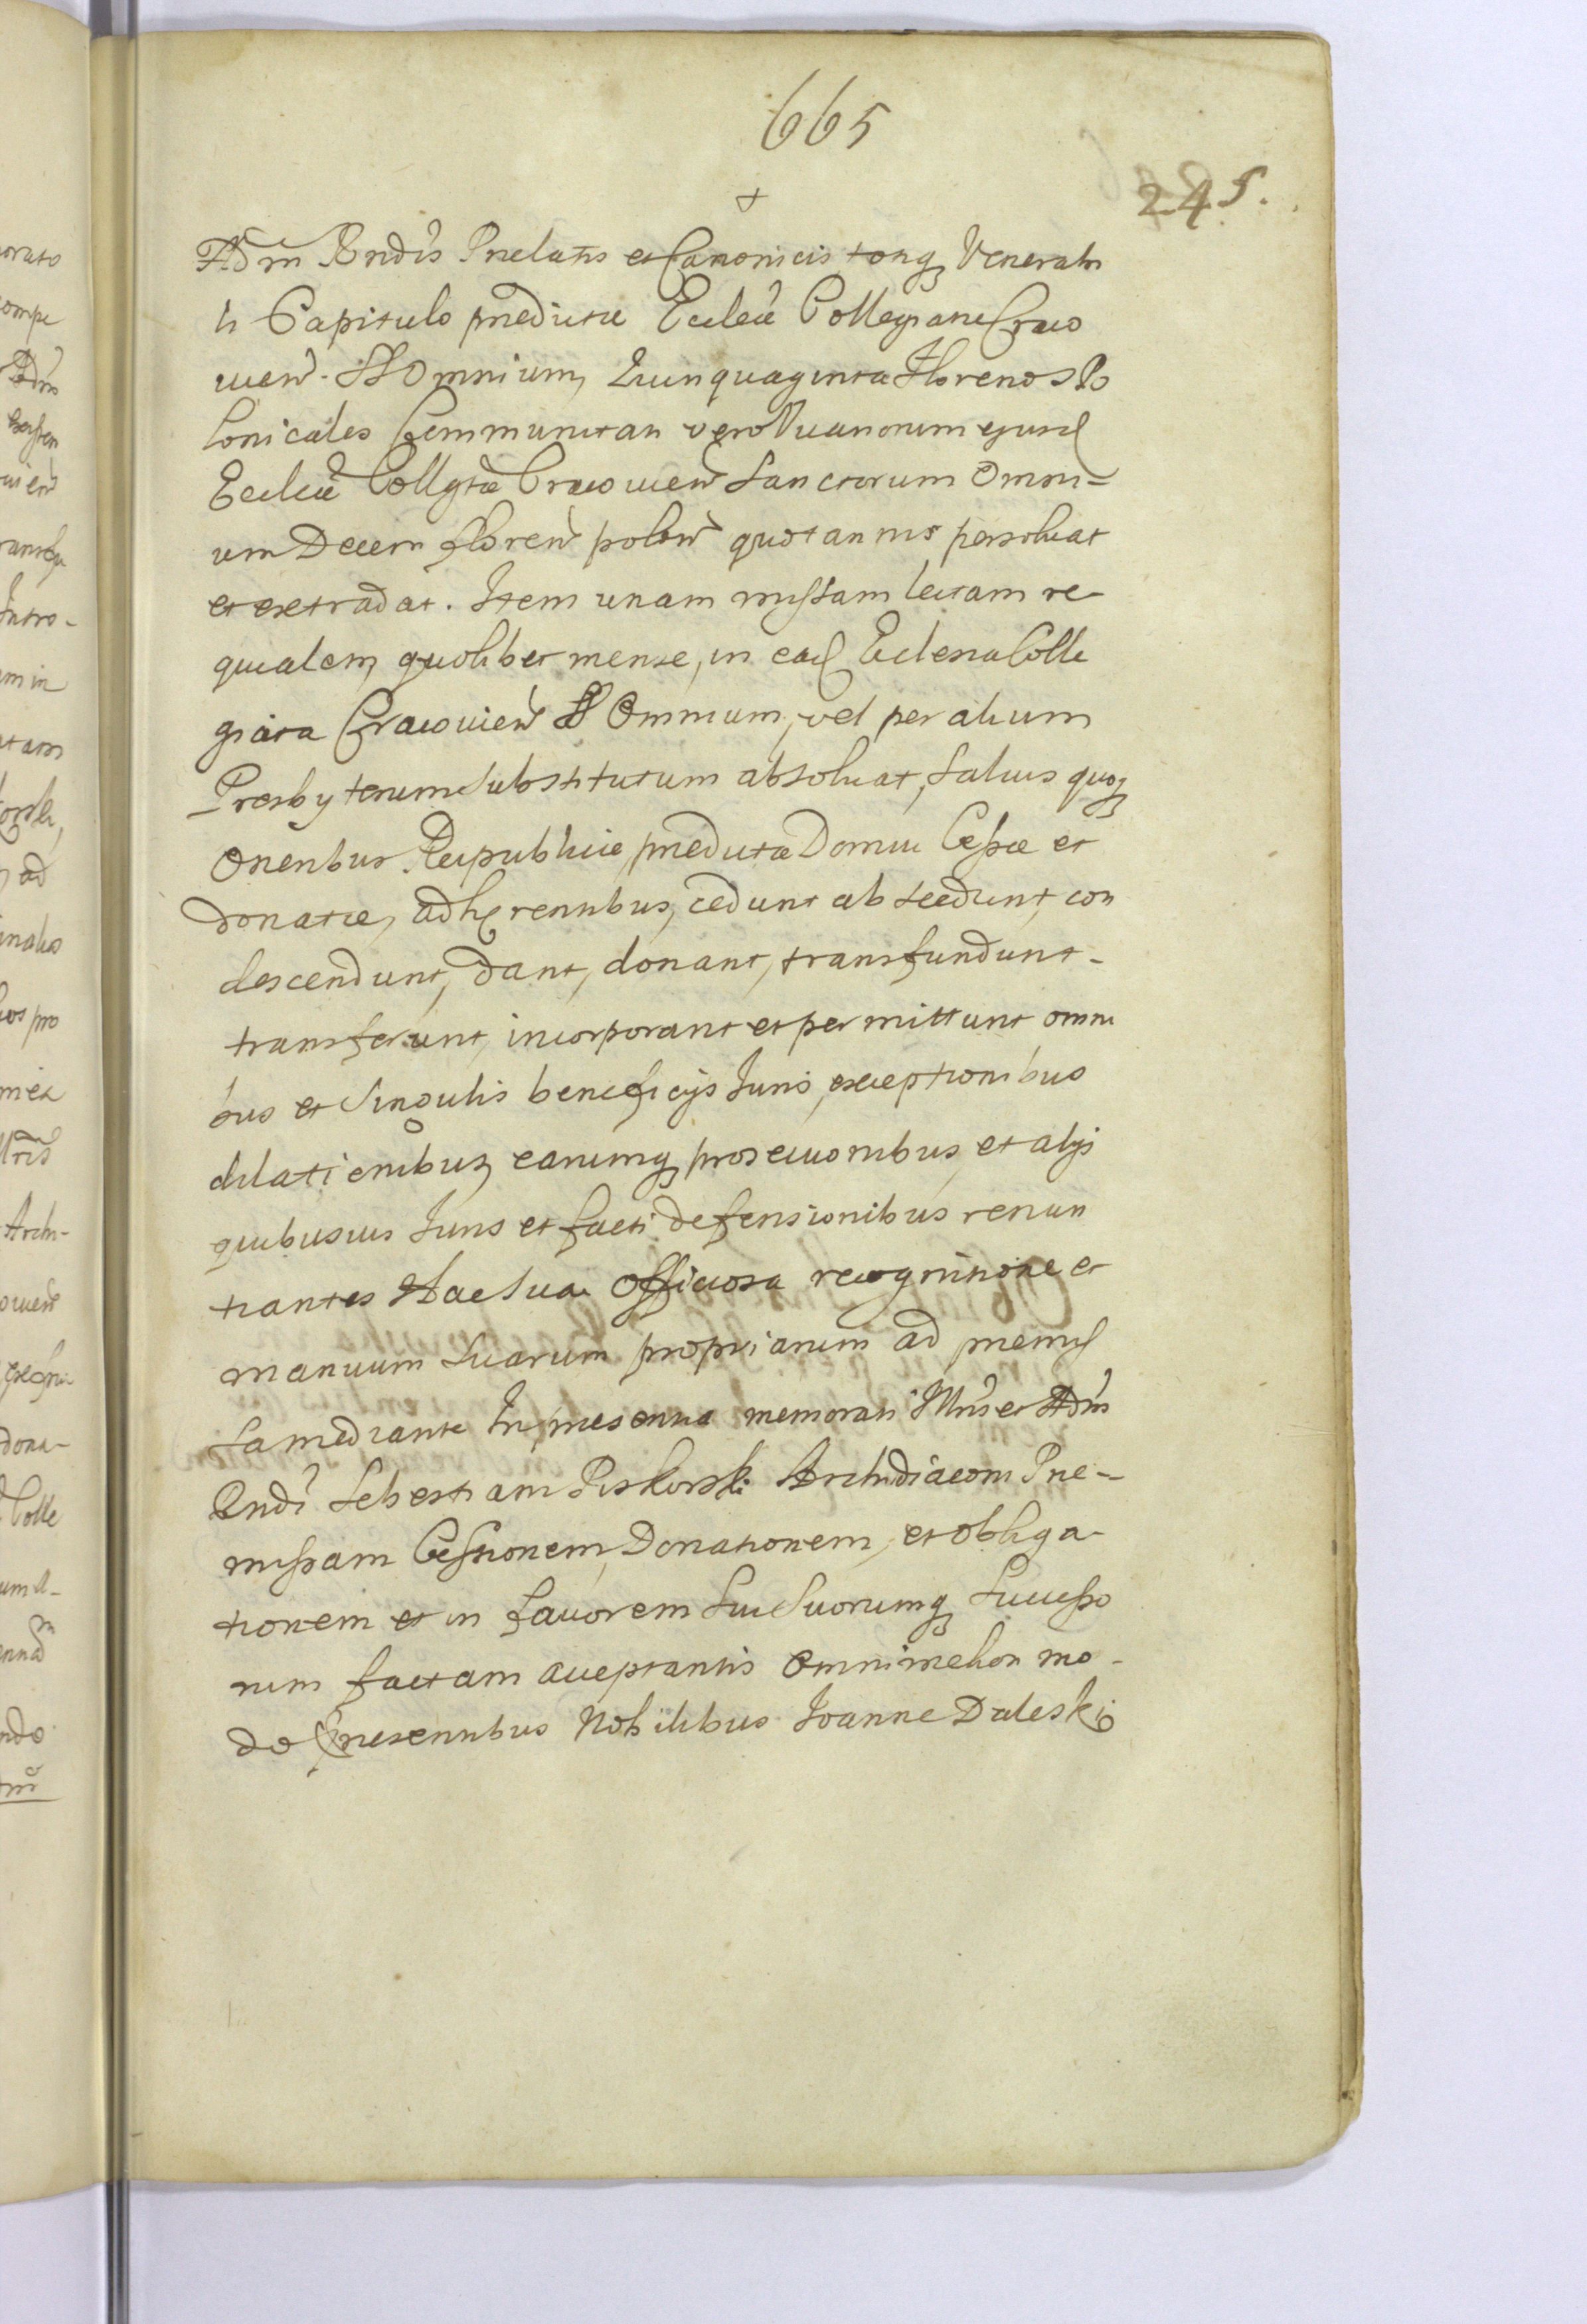 665
+
245.
Adm Rndis Prælatis et Canonicis totiq Venerabi
li Capitulo prædictæ Ecclæ Collegiatæ Craco
vien. SS Omnium, Quinquaginta Florenos Po
lonicales Communitati vero Vicariorum ejusd
Ecclæ Collgtæ Cracovien Sanctorum Omni=
um Decem floren polon quotannis persolvat
et extradat. Item unam missam lectam re-
quialem, quolibet mense, in ead Eclesia Colle
giata Cracovien SS Omnium, vel per alium
Presbyterum Substitutum absolvat, Salvis quoq
Oneribus Reipublicæ, prædictæ Domui Cessæ et
donatæ, adhærentibus, cedunt abscedunt, con
descendunt, dant, donant, transfundunt-
transferunt, incorporant et permittunt omni
bus et Singulis beneficijs Iuris, exceptionibus
dilationibus, earumq prosecutionibus, et alijs
quibusvis Iuris et facti defensionibus renun
tiantes Hac Sua Officiosa recognitione et
manuum Suarum propriarum ad præmis
sa mediante In præsentia memorati Illris et Adm
Rndi Sebestiani Piskorski Archidiaconi Præ-
missam Cessionem, Donationem, et obliga-
tionem et in favorem Sui Suorumq Successo
rum factam acceptantis Omni meliori mo-
do Præsentibus Nobilibus Ioanne Daleski